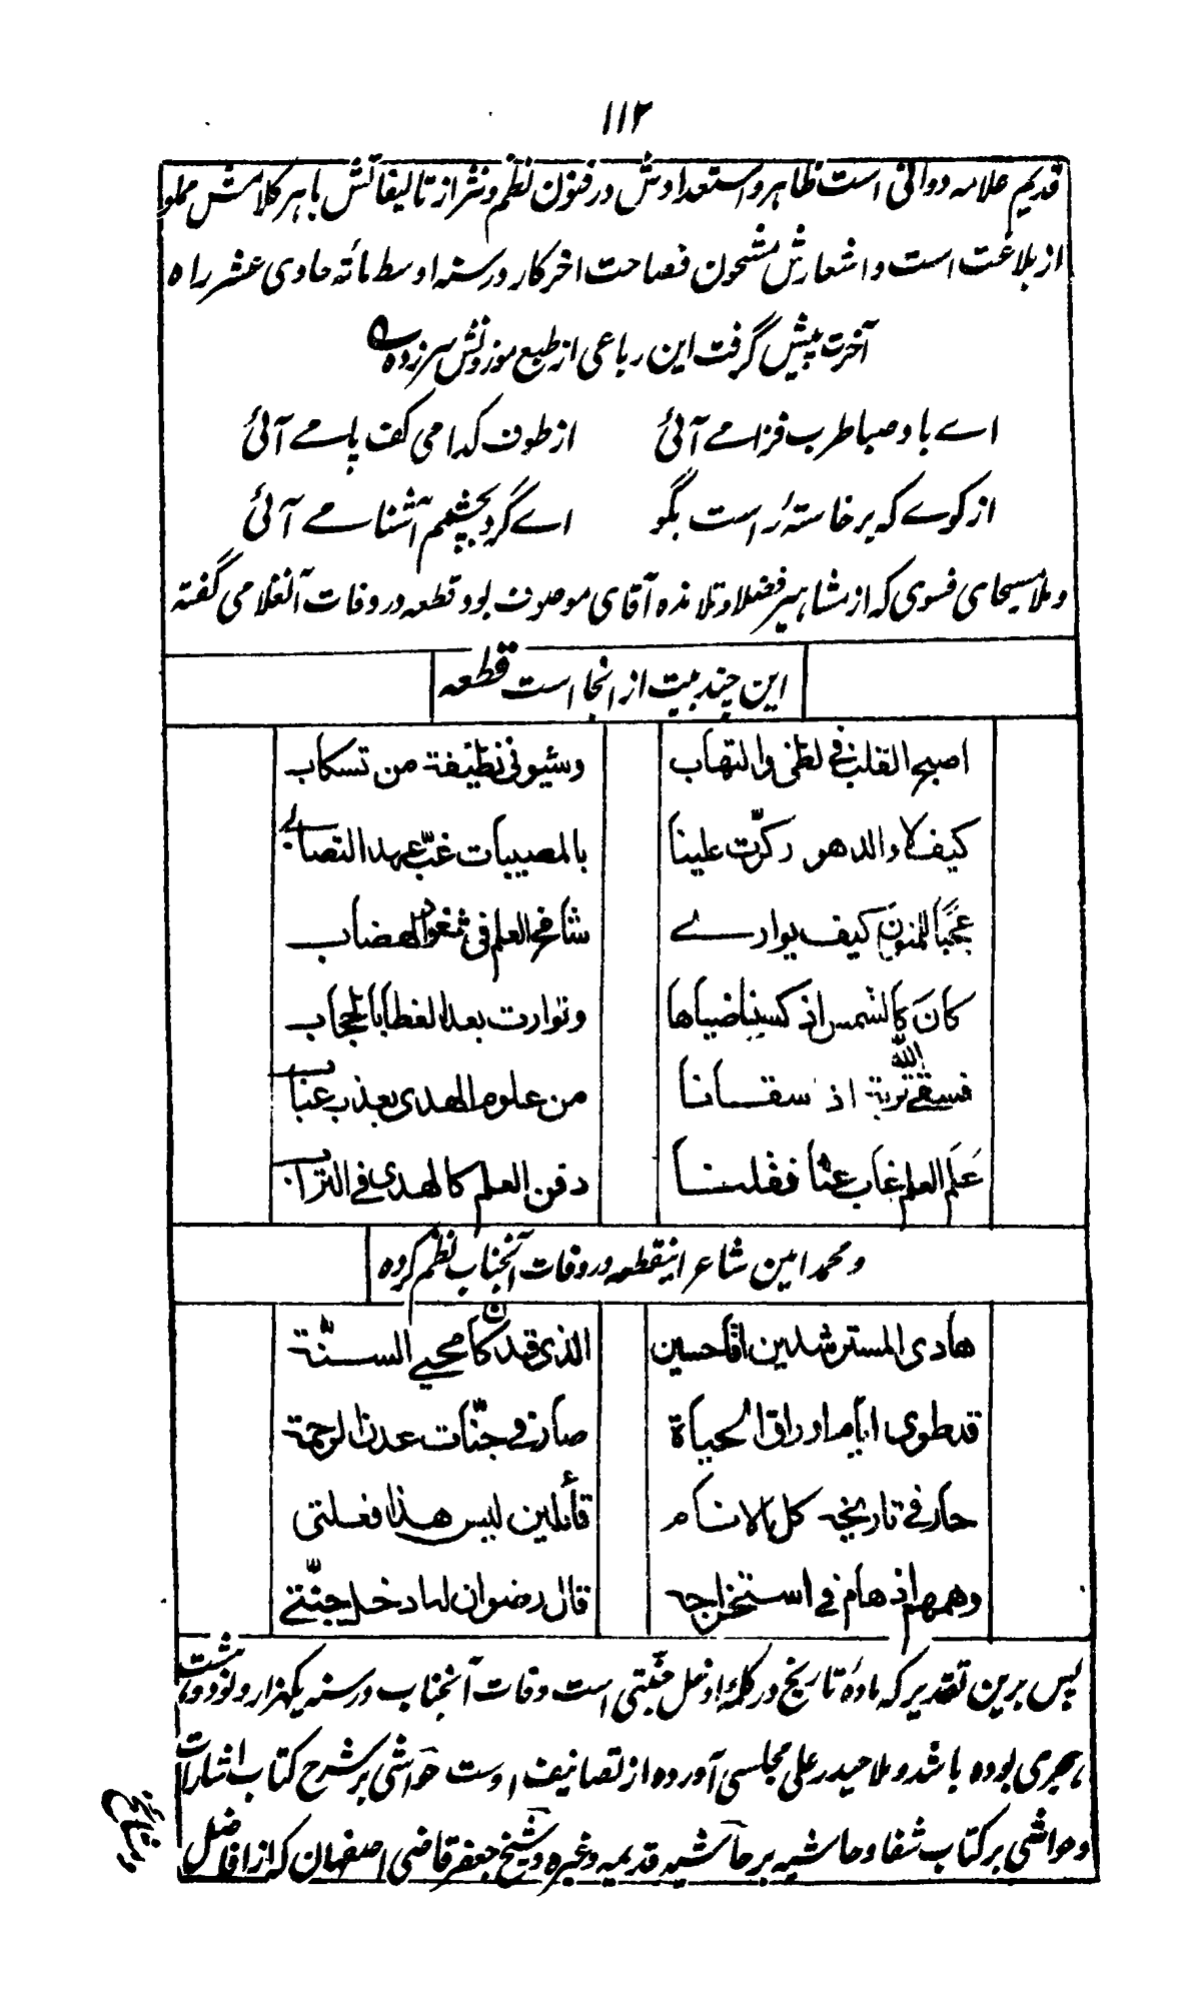 ۱۱۲
قدیم علامه دوانی است ظاهر و استعدادش در فنون نظم و نثر از تالیفاتش باهر کلامش مملو
از بلاغت است و اشعارش مشحون فصاحت اخر کار در سنه اوسط مائه حادی عشر راه
آخرت پیش گرفت این رباعی از طبع موزونش سرزده
اے باد صبا طرب فزا مے آئی از طوف کدامی کف پا مے آئی
از کوے که برخاستهٔ راست بگو اے گرد بچشم آشنا مے آئی
و ملا مسیحای فسوی که از مشاهیر فضلا و تلامذه آقای موصوف بود قطعه در وفات آنغلامی گفته
این چند بیت از انجا است قطعه
اصبح القلب فے لظی والتهاب وشیونی نظیفة من تسکاب
کیف لا والدهور کرّت علینا بالمصیبات غبّ عهد التصابے
عجباً للمنون کیف یوارے شامخ العلم فی الهضاب
کانَ کالشمس اذ کسینا ضیاها وتوارت بعد الغطا بالحجاب
فسقے الله تربة اذ سقانا من علوم الهدی بعذب عباب
عَلَم العلم غاب عنّا فقلنا دفن العلم کالهدی فے التراب
و محمد امین شاعر اینقطعه در وفات آنجناب نظم کرده
هادی المسترشدین اقا حسین الذی قد کان محیے السنّة
قد طوی ایام اوراق الحیاة صار فے جنّات عدن الرحمة
حار فے تاریخه کل الانام قائلین لیس هذا فعلتی
وهمهم اذ هام فے استخراجه قال رضوان لها دخل جنّتے
پس برین تقدیر که مادهٔ تاریخ در کلمهٔ ادخل جنتی است وفات آنجناب در سنه یکهزار و نود و هشت
هجری بوده باشد و ملا حیدر علی مجلسی آورده از تصانیف اوست حواشی بر شرح کتاب اشارات
و حواشی بر کتاب شفا و حاشیه بر حاشیه قدیمه و غیره و شیخ جعفر قاضی اصفهان که از افاضل